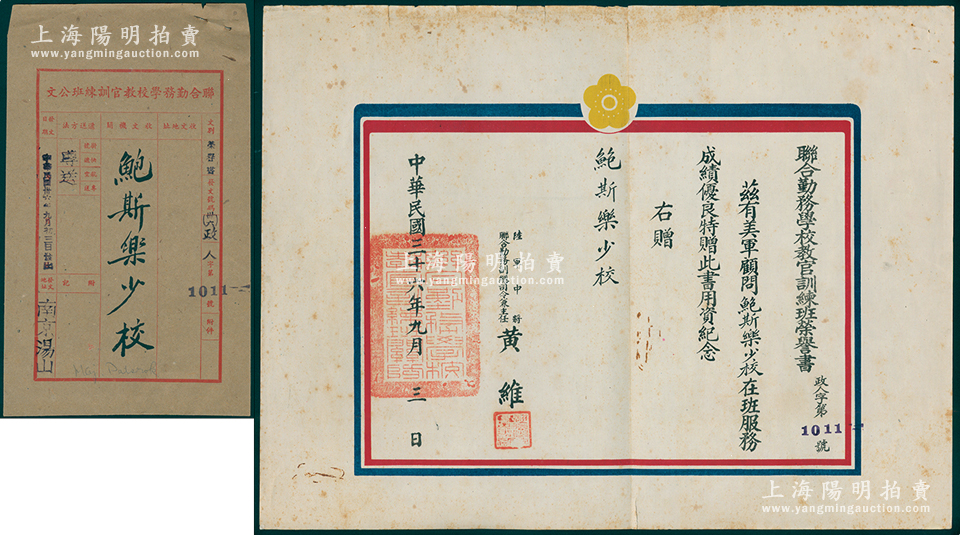 上海陽明拍賣
www.yangmingauction.com
聯合勤務學校教官訓練班公文
文別
發文號碼
政
人字第
1011
號
附件
收文地址
收文機關
鮑斯樂少校
遞送方法
專送
附記
發文日期
發文地址
南京湯山
上海陽明拍賣
www.yangmingauction.com
聯合勤務學校教官訓練班榮譽書
政人字第
1011
號
茲有美軍顧問鮑斯樂少校在班服務
成績優良特贈此書用資紀念
右贈
鮑斯樂少校
陸軍中將
聯合勤務
司令兼主任
黃維
中華民國三十六年九月三日
上海陽明拍賣
www.yangmingauction.com